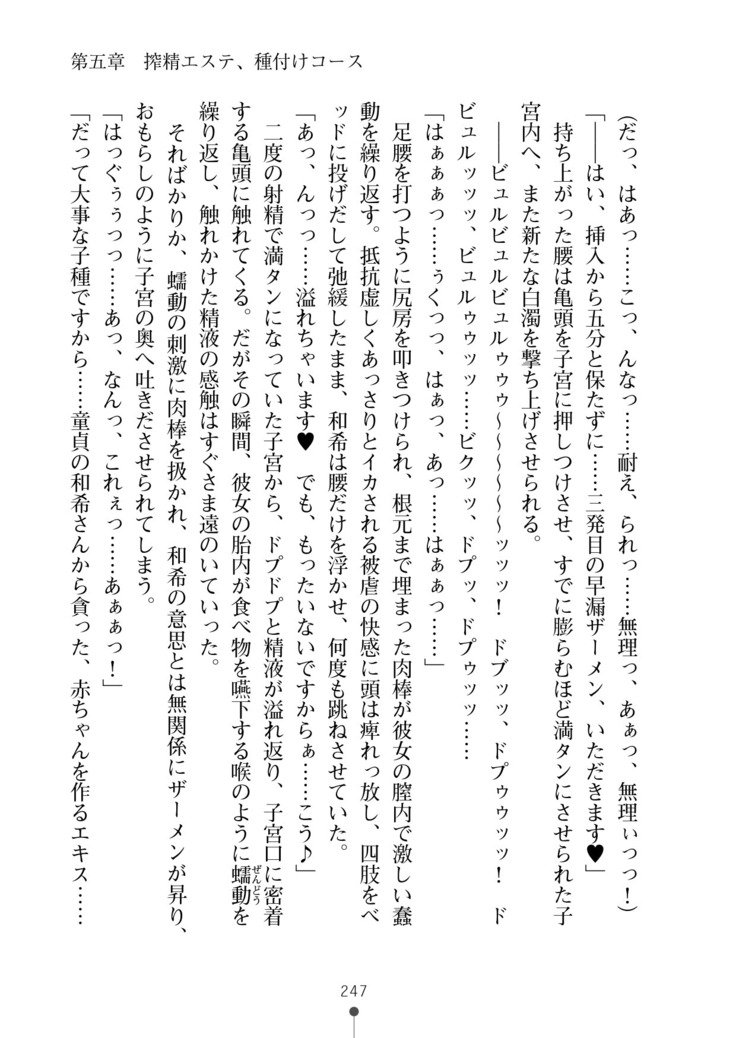 第五章　搾精エステ、種付けコース
（だっ、はあっ……こっ、んなっ……耐え、られっ……無理っ、あぁっ、無理ぃっっ！）
「――はい、挿入から五分と保たずに……三発目の早漏ザーメン、いただきます♥」
　持ち上がった腰は亀頭を子宮に押しつけさせ、すでに膨らむほど満タンにさせられた子
宮内へ、また新たな白濁を撃ち上げさせられる。
　――ビュルビュルビュルゥゥゥ～～～～～～ッッッ！　ドブッッ、ドプゥゥッッ！　ド
ビュルッッッ、ビュルゥゥッッ……ビクッッ、ドプッ、ドプゥッッ……
「はぁぁぁっ……ぅくっっ、はぁっ、あっ……はぁぁっ……」
　足腰を打つように尻房を叩きつけられ、根元まで埋まった肉棒が彼女の膣内で激しい蠢
動を繰り返す。抵抗虚しくあっさりとイカされる被虐の快感に頭は痺れっ放し、四肢をベ
ッドに投げだして弛緩したまま、和希は腰だけを浮かせ、何度も跳ねさせていた。
「あっ、んっっ……溢れちゃいます♥　でも、もったいないですからぁ……こう♪」
　二度の射精で満タンになっていた子宮から、ドプドプと精液が溢れ返り、子宮口に密着
する亀頭に触れてくる。だがその瞬間、彼女の胎内が食べ物を嚥下する喉のように蠕動を
ぜんどう
繰り返し、触れかけた精液の感触はすぐさま遠のいていった。
　そればかりか、蠕動の刺激に肉棒を扱かれ、和希の意思とは無関係にザーメンが昇り、
おもらしのように子宮の奥へ吐きださせられてしまう。
「はっぐぅぅっっ……あっ、なんっ、これぇっ……あぁぁっ！」
「だって大事な子種ですから……童貞の和希さんから貪った、赤ちゃんを作るエキス……
247